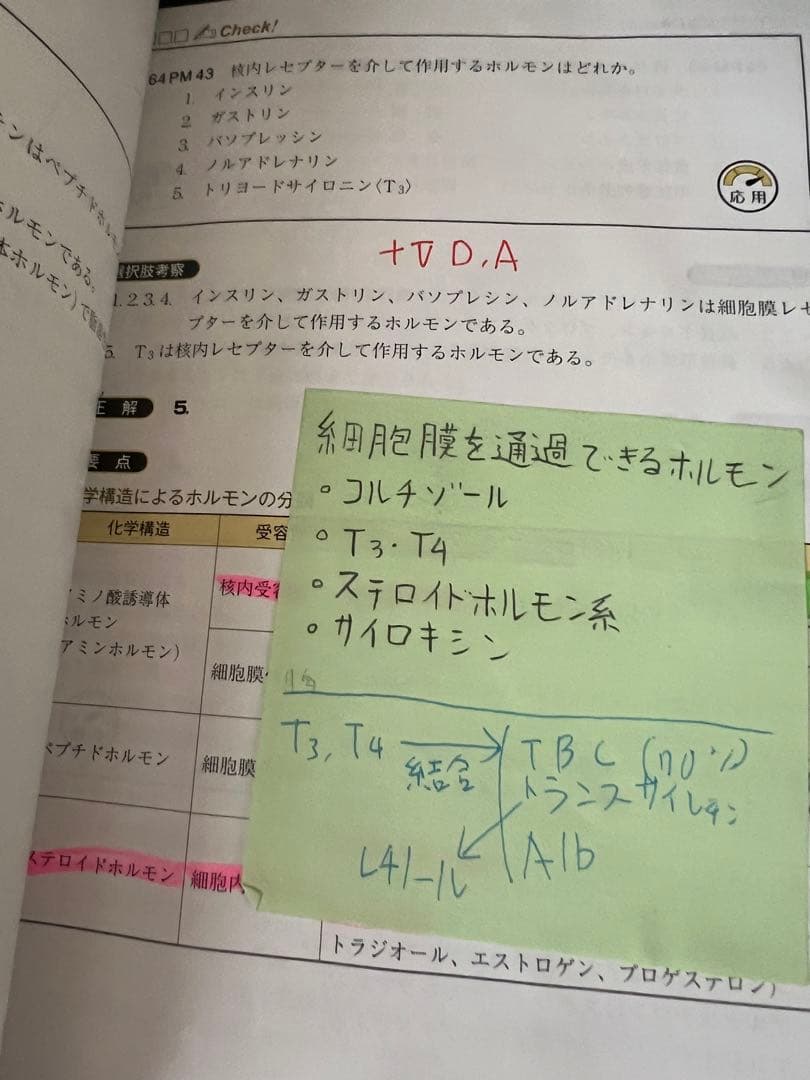 Check!
64 PM 43 核内レセプターを介して作用するホルモンはどれか。
1. インスリン
2. ガストリン
3. バソプレッシン
4. ノルアドレナリン
5. トリヨードサイロニン〈T₃〉
応用
D,A
選択肢考察
1.2.3.4. インスリン、ガストリン、バソプレシン、ノルアドレナリンは細胞膜レセ
プターを介して作用するホルモンである。
5. T₃は核内レセプターを介して作用するホルモンである。
正解 5.
要点
学構造によるホルモンの分
化学構造 受容
核内受容
ミノ酸誘導体
ホルモン
アミンホルモン)
細胞膜
ペプチドホルモン 細胞膜
ステロイドホルモン 細胞内
トラジオール、エストロゲン、プロゲステロン)
細胞膜を通過できるホルモン
・コルチゾール
・T3・T4
・ステロイドホルモン系
・サイロキシン
T3, T4 結合 TBC (70%)
トランスサイレチン
レチノール Alb
ンはペプチドホルモ
ホルモンである。
体ホルモン)で